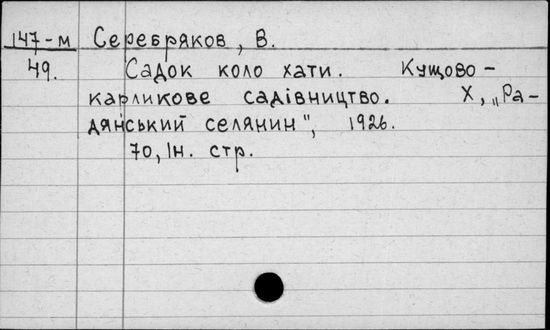 147-м Серебряков, В.
49. Садок коло хати. Кущово-
карликове садівництво. Х, „Ра-
дянський селянин", 1926.
70, Ін. стр.